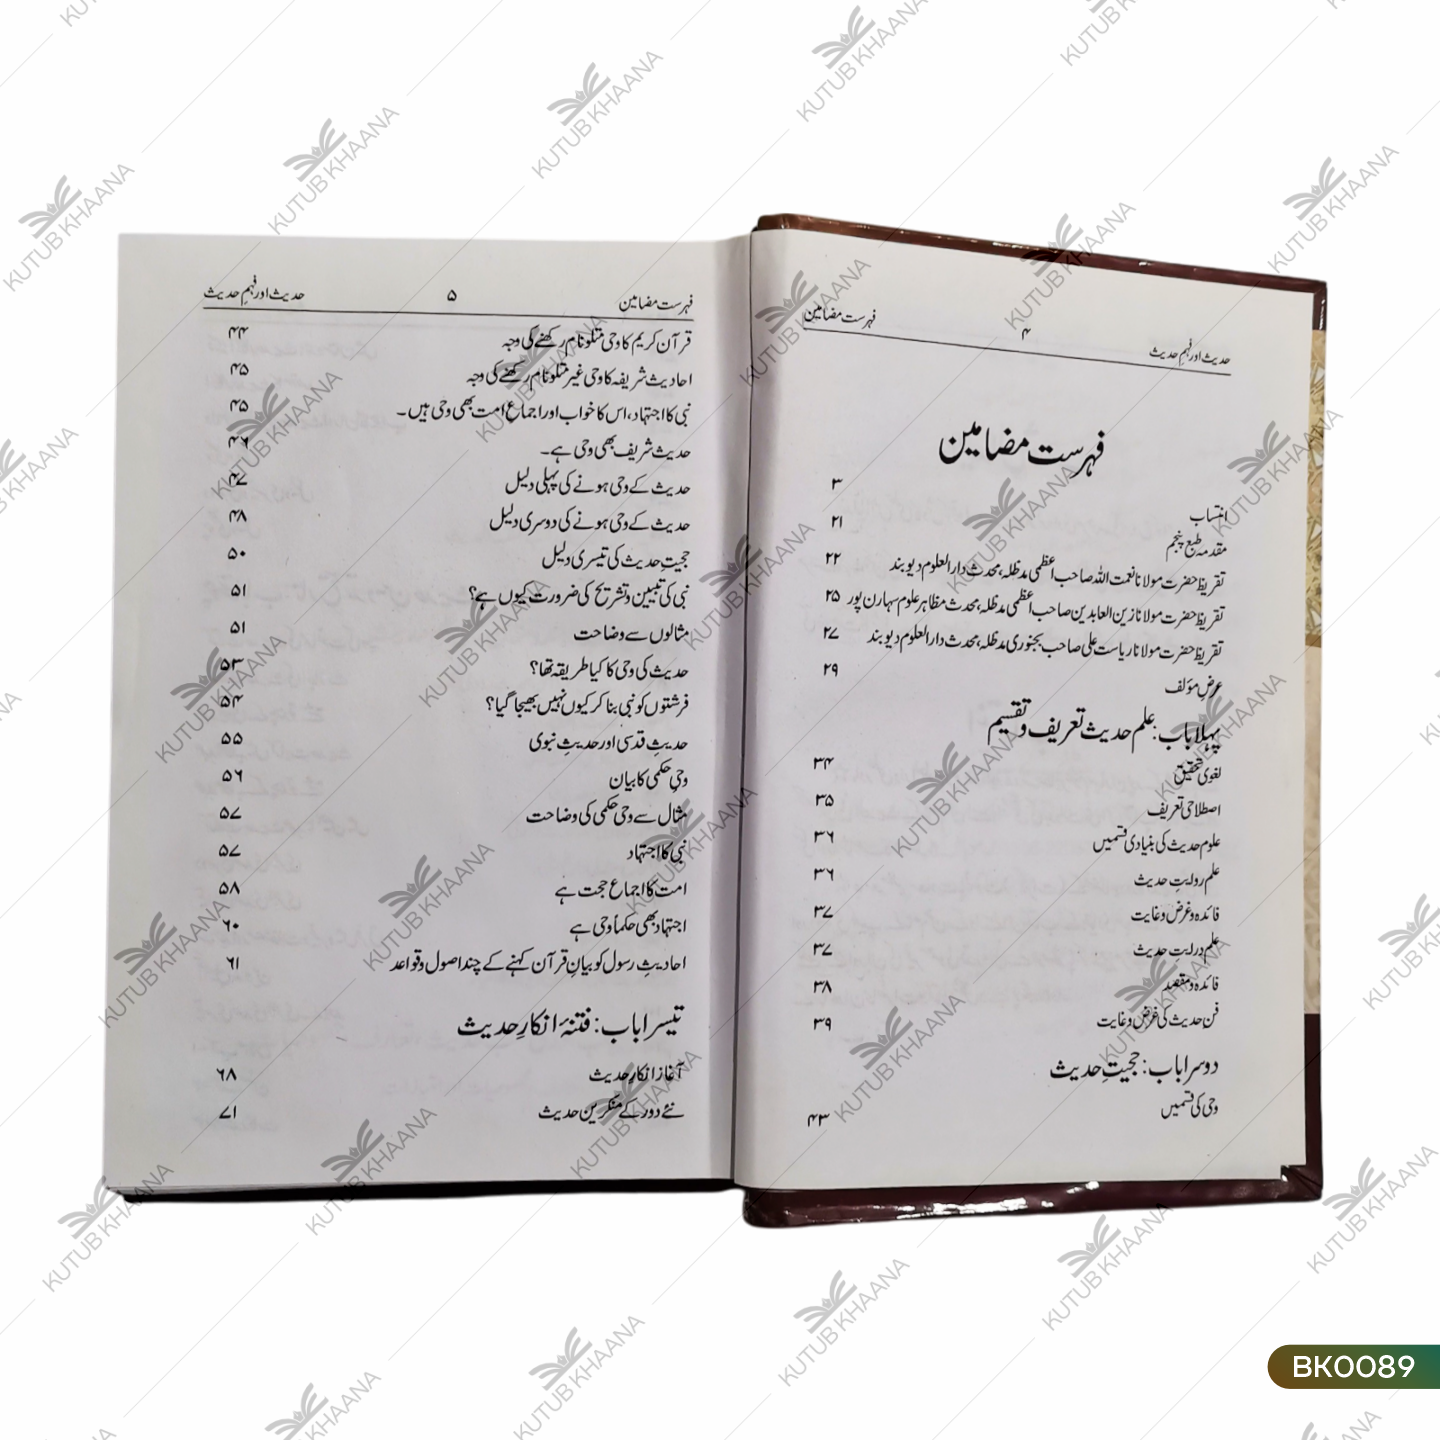 حدیث اور فہم حدیث ۴ فہرست مضامین
فہرست مضامین
انتساب ۳
مقدمہ طبع پنجم ۲۱
تقریظ حضرت مولانا نعمت اللہ صاحب اعظمی مدظلہ، محدث دارالعلوم دیوبند ۲۲
تقریظ حضرت مولانا زین العابدین صاحب اعظمی مدظلہ، محدث مظاہر علوم سہارن پور ۲۵
تقریظ حضرت مولانا ریاست علی صاحب بجنوری مدظلہ، محدث دارالعلوم دیوبند ۲۷
عرض مؤلف ۲۹
پہلا باب: علم حدیث تعریف و تقسیم
لغوی تحقیق ۳۴
اصطلاحی تعریف ۳۵
علوم حدیث کی بنیادی قسمیں ۳۶
علم روایتِ حدیث ۳۶
فائدہ و غرض و غایت ۳۷
علم درایتِ حدیث ۳۷
فائدہ و مقصد ۳۸
فن حدیث کی غرض و غایت ۳۹
دوسرا باب: حجیتِ حدیث
وحی کی قسمیں ۴۳
فہرست مضامین ۵ حدیث اور فہم حدیث
قرآن کریم کا وحی متلو نام رکھنے کی وجہ ۴۴
احادیث شریفہ کا وحی غیر متلو نام رکھنے کی وجہ ۴۵
نبی کا اجتہاد، اس کا خواب اور اجماع امت بھی وحی ہیں۔ ۴۵
حدیث شریف بھی وحی ہے۔ ۴۶
حدیث کے وحی ہونے کی پہلی دلیل ۴۷
حدیث کے وحی ہونے کی دوسری دلیل ۴۸
حجیتِ حدیث کی تیسری دلیل ۵۰
نبی کی تبیین و تشریح کی ضرورت کیوں ہے؟ ۵۱
مثالوں سے وضاحت ۵۱
حدیث کی وحی کا کیا طریقہ تھا؟ ۵۳
فرشتوں کو نبی بنا کر کیوں نہیں بھیجا گیا؟ ۵۴
حدیثِ قدسی اور حدیثِ نبوی ۵۵
وحیِ حکمی کا بیان ۵۶
مثال سے وحی حکمی کی وضاحت ۵۷
نبی کا اجتہاد ۵۷
امت کا اجماع حجت ہے ۵۸
اجتہاد بھی حکماً وحی ہے ۶۰
احادیثِ رسول کو بیانِ قرآن کہنے کے چند اصول و قواعد ۶۱
تیسرا باب: فتنۂ انکارِ حدیث
آغاز انکارِ حدیث ۶۸
نئے دور کے منکرین حدیث ۷۱
KUTUB KHAANA
BK0089